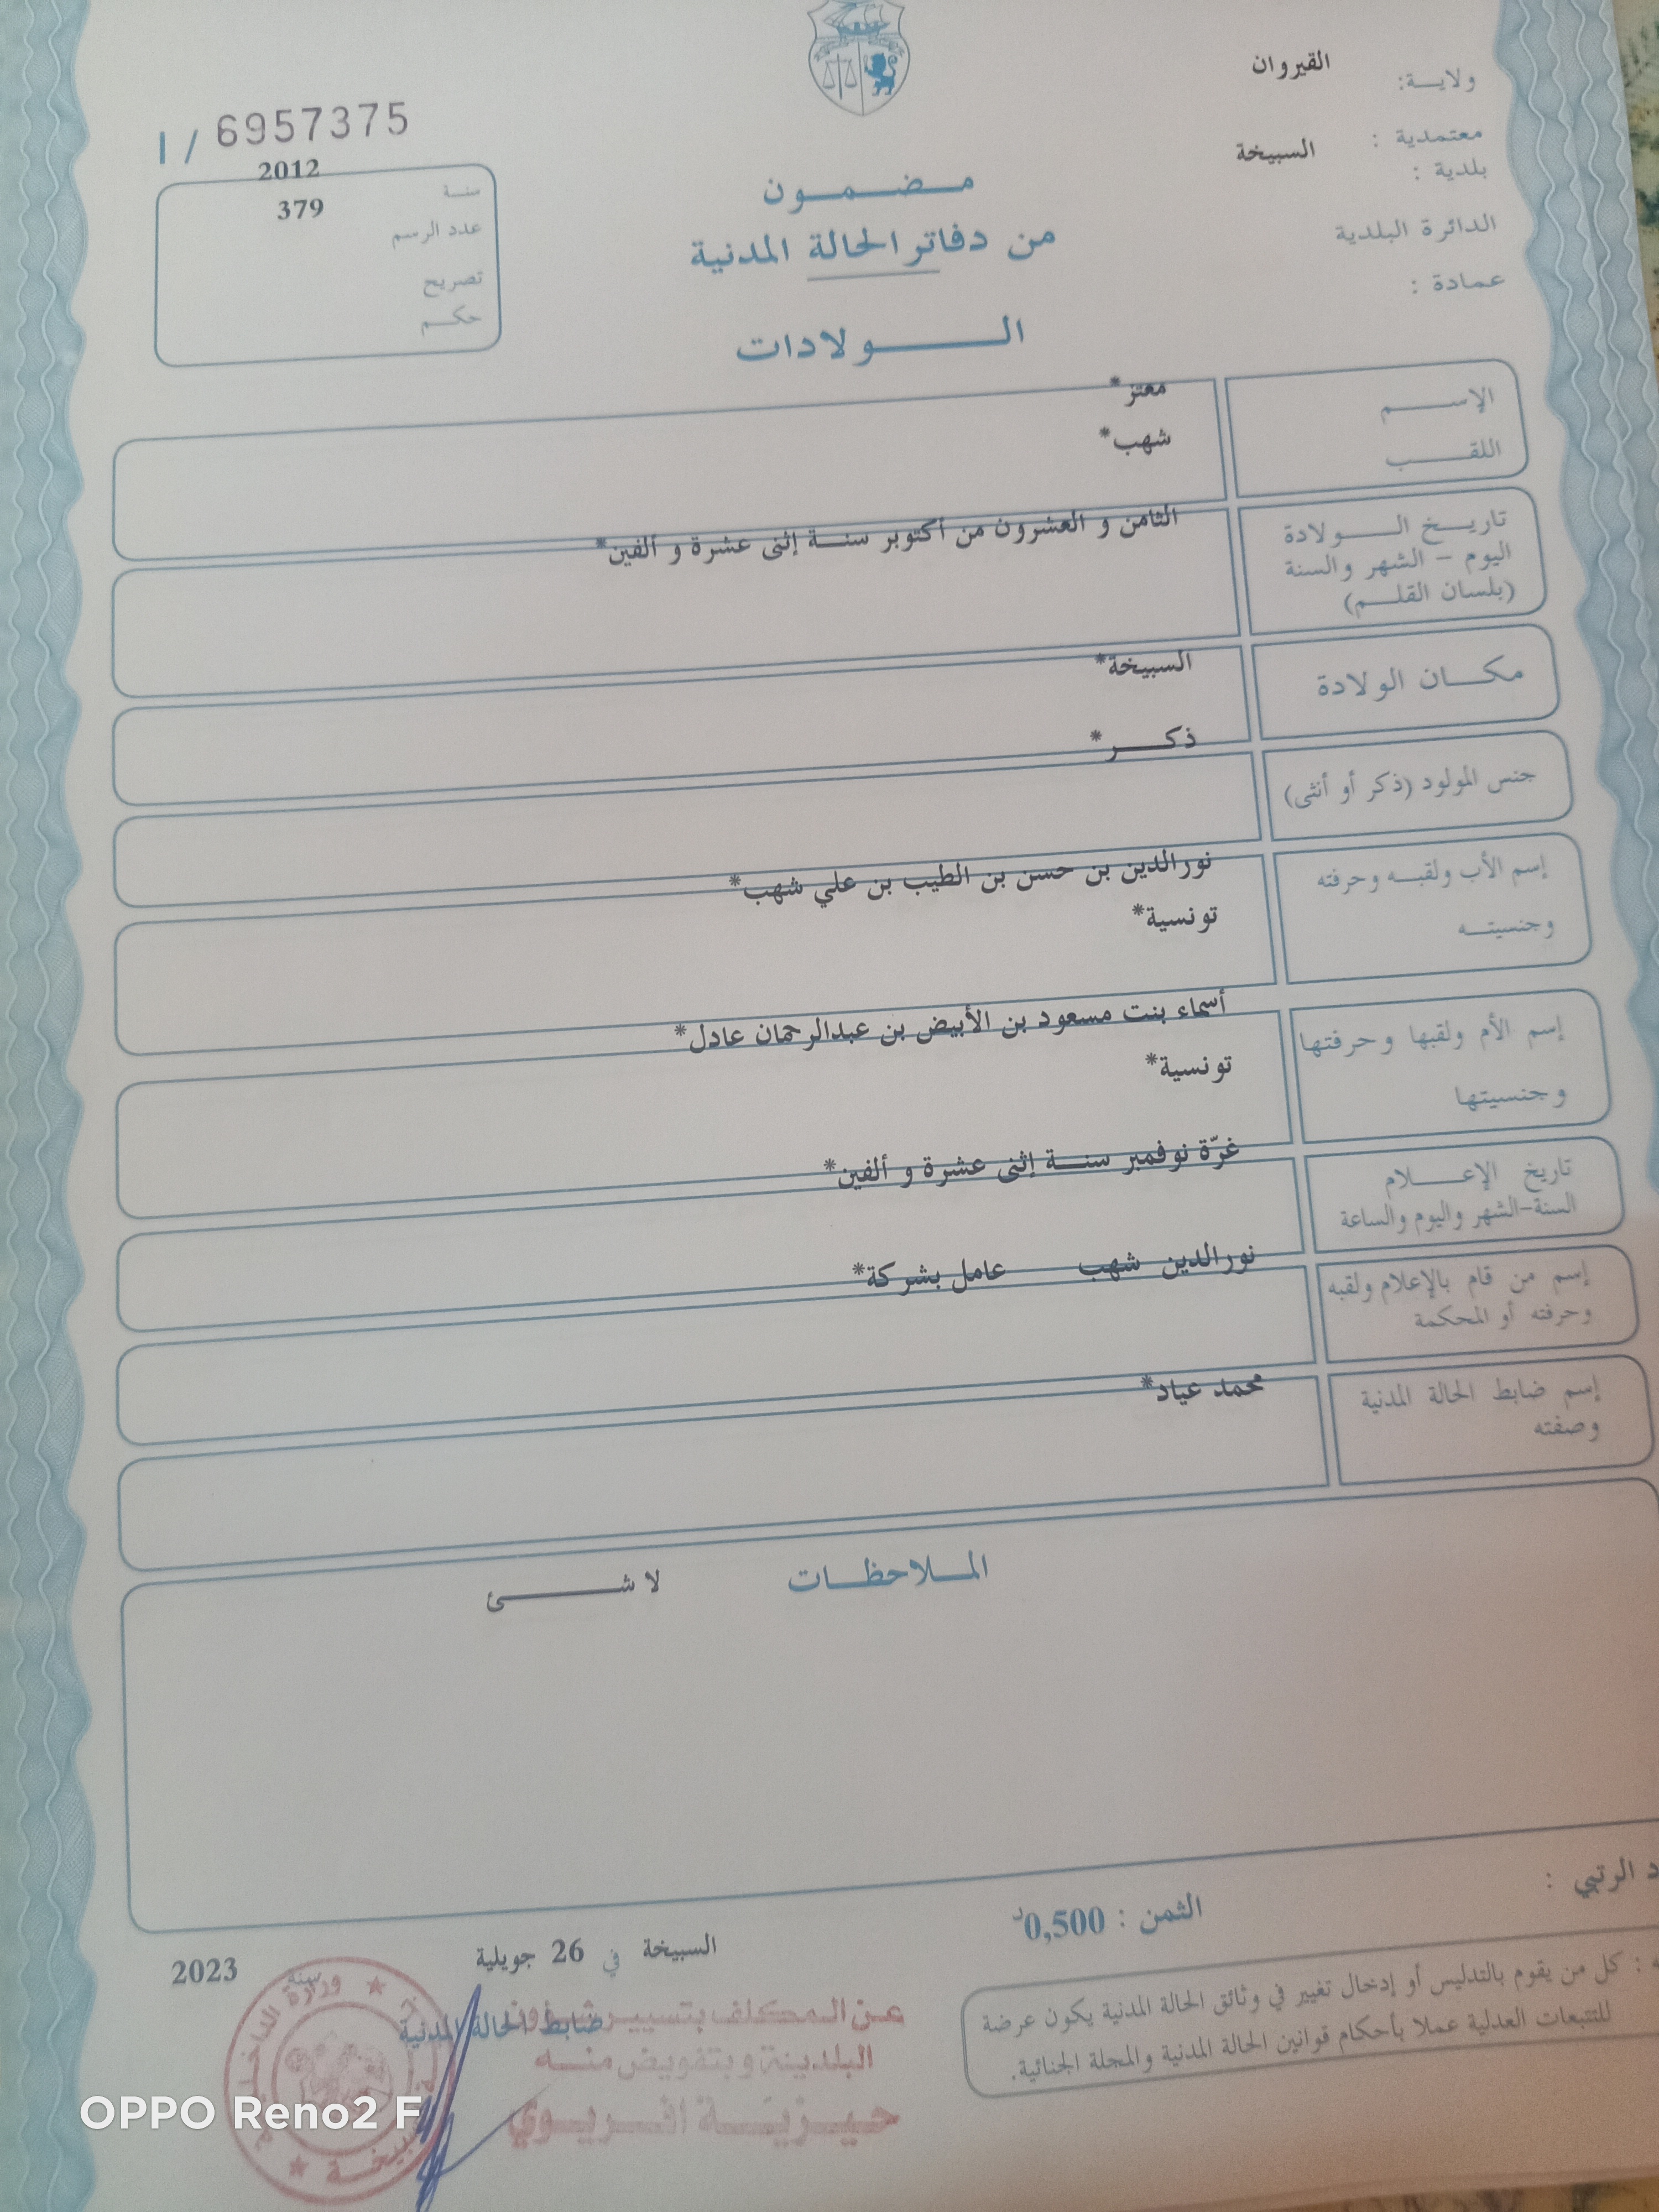 ولايـــة: القيروان
معتمدية :
بلدية : السبيخة
الدائرة البلدية
عمادة :
I / 6957375
سنـة 2012
عدد الرسم 379
تصريح
حكـــم
مـــضـــمـــون
من دفاتر الحالة المدنية
الـــــولادات
الإســـــم معتز*
اللقـــــب شهب*
تاريـــخ الـــــولادة
اليوم – الشهر والسنة
(بلسان القلـــم)
الثامن و العشرون من أكتوبر سنـــة إثنى عشرة و ألفين*
مكـــان الولادة السبيخة*
جنس المولود (ذكر أو أنثى) ذكـــــر*
إسم الأب ولقبـــه وحرفته نورالدين بن حسن بن الطيب بن علي شهب*
وجنسيتـــه تونسية*
إسم الأم ولقبها وحرفتها أسماء بنت مسعود بن الأبيض بن عبدالرحمان عادل*
وجنسيتها تونسية*
تاريخ الإعـــــلام
السنة-الشهر واليوم والساعة
غرّة نوفمبر سنـــة إثنى عشرة و ألفين*
إسم من قام بالإعلام ولقبه
وحرفته أو المحكمة
نورالدين شهب عامل بشركة*
إسم ضابط الحالة المدنية
وصفته
محمد عياد*
المـــلاحظـــات لا شـــــــئ
د الرتبي :
الثمن : 0,500د
السبيخة في 26 جويلية سنة 2023
ضابط الحالة المدنية
عـن الـمكلف بتسييـر شـؤون
البلديـة و بتفويض منـه
وزارة الداخلية
ـه : كل من يقوم بالتدليس أو إدخال تغيير في وثائق الحالة المدنية يكون عرضة
للتتبعات العدلية عملا بأحكام قوانين الحالة المدنية والمجلة الجنائية.
OPPO Reno2 F